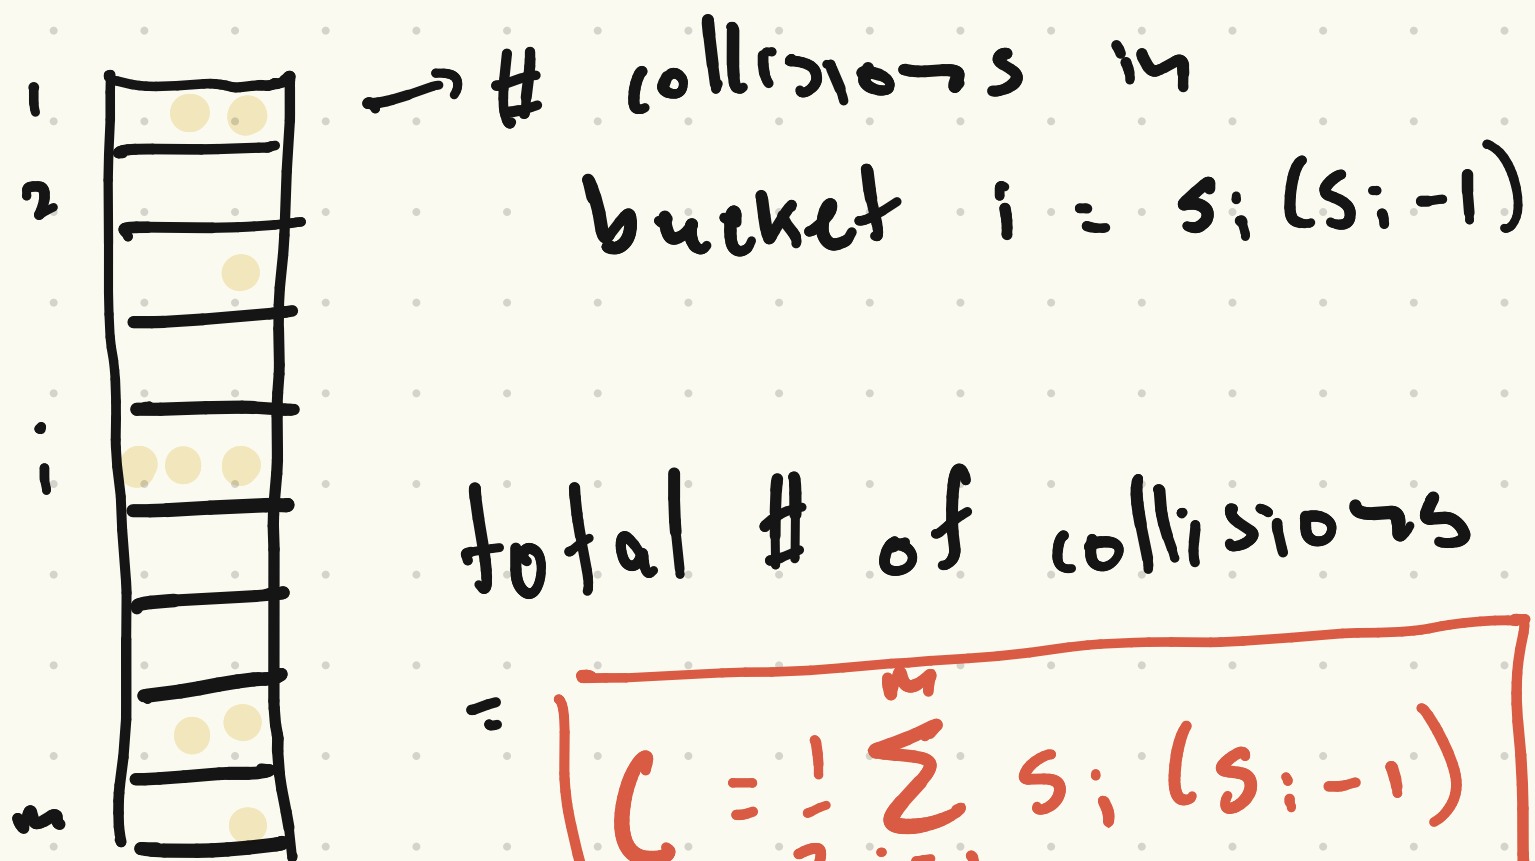 1
→ # collisions in
2
bucket i = sᵢ (sᵢ - 1)
i
total # of collisions
m
= C = 1/2 ∑ᵢ₌₁ᵐ sᵢ (sᵢ - 1)